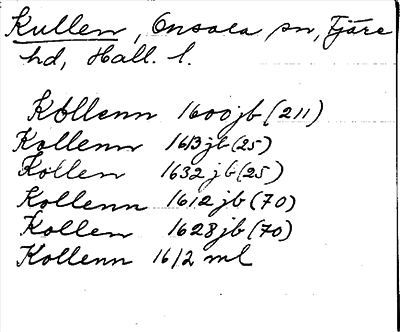 Kullen, Onsala sn, Fjäre
hd, Hall. l.
Kollenn 1600 jb (211)
Kollenn 1613 jb (25)
Kollen 1632 jb (25)
Kollenn 1612 jb (70)
Kollen 1628 jb (70)
Kollenn 1612 ml